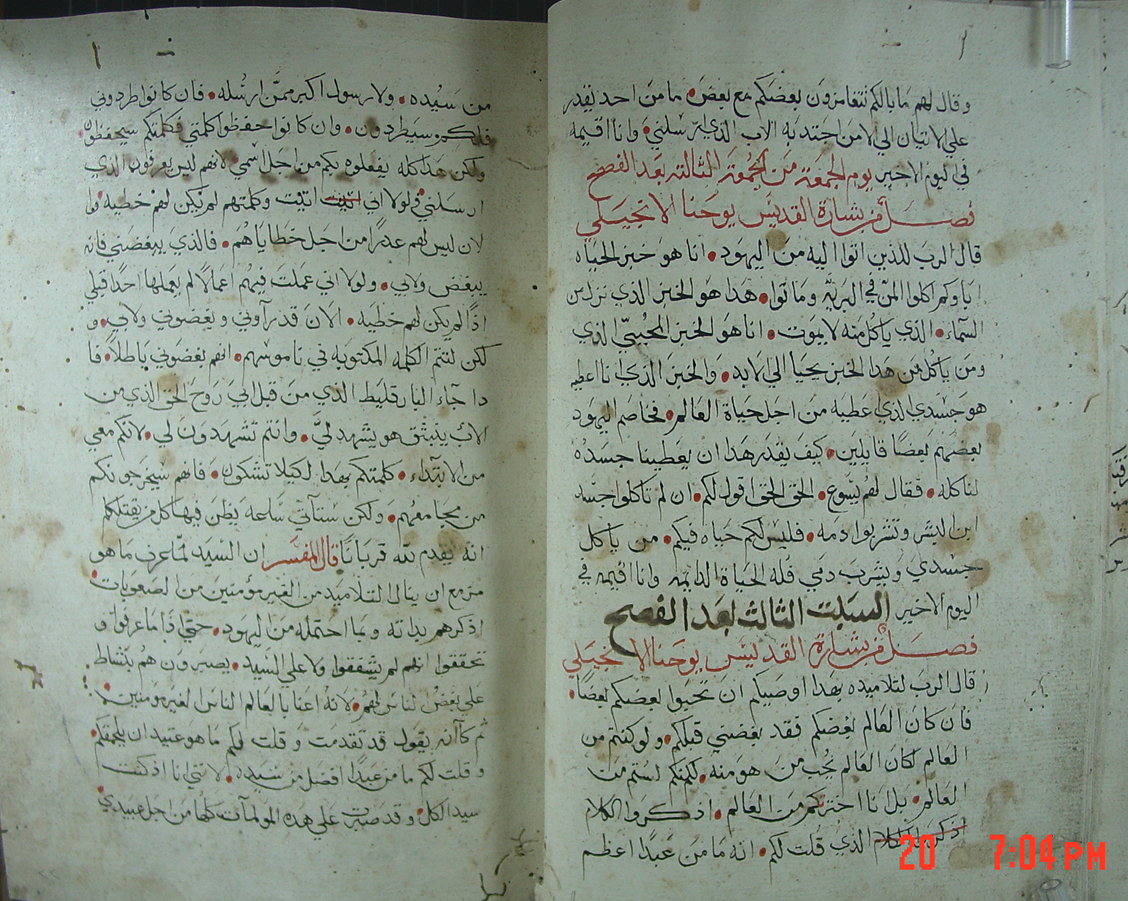 وقال لهم ما بالكم تتغامزون بعضكم مع بعض ما من احد يقدر
على الاتيان الي الا من اجتدبه الاب الذي ارسلني وانا اقيمه
في اليوم الاخير يوم الجمعة من الجمعة الثالثة بعد الفصح
فصل من بشارة القديس يوحنا الانجيلي
قال الرب للذين اتوا اليه من اليهود انا هو خبز الحياه
اباوكم اكلوا المن في البريه وماتوا هذا هو الخبز الذي نزل من
السماء الذي ياكل منه لا يموت انا هو الخبز المحيي الذي
ومن ياكل من هدا الخبز يحيا الى الابد والخبز الذي انا اعطيه
هو جسدي الذي اعطيه من اجل حياة العالم فخاصم اليهود
بعضهم بعضا قايلين كيف يقدر هدا ان يعطينا جسده
لناكله فقال لهم يسوع الحق الحق اقول لكم ان لم تاكلوا جسد
ابن البشر وتشربوا دمه فليس لكم حياه فيكم من ياكل
جسدي ويشرب دمي فله الحياة الدايمه وانا اقيمه في
اليوم الاخير السبت الثالث بعد الفصح
فصل من بشارة القديس يوحنا الانجيلي
قال الرب لتلاميده بهدا اوصيكم ان تحبوا بعضكم بعضا
فان كان العالم يبغضكم فقد بغضني قبلكم ولو كنتم من
العالم لكان العالم يحب من هو منه لكنكم لستم من
العالم بل انا اخترتكم من العالم اذكروا الكلام
الذي قلت لكم انه ما من عبدا اعظم
من سيده ولا رسول اكبر ممن ارسله فان كانوا طردوني
فلكم سيطردون وان كانوا حفظوا كلمتي فكلمتكم سيحفظون
ولكن هدا كله يفعلوه بكم من اجل اسمي لانهم ليس يعرفون الذي
ارسلني فلولا اني اتيت وكلمتهم لم يكن لهم خطيه وا
لان ليس لهم عدرا من اجل خطاياهم فالذي يبغضني فانه
يبغض ولابي ولولا اني عملت فيهم اعمالا لم يعملها احدا قبلي
اذا لم يكن لهم خطيه الان قد رآوني وبغضوني ولابي و
لكن لتتم الكلمه المكتوبه في ناموسهم انهم بغضوني باطلا فا
دا جاء البارقليط الذي من قبل ابي روح الحق الذي من
الاب ينبثق هو يشهد لي وانتم تشهدون لي لانكم معي
من الابتداء كلمتكم بهدا لكيلا تشكون فانهم سيخرجونكم
من مجامعهم ولكن ستآتي ساعه يظن فيها كل من يقتلكم
انه يقدم لله قربانا قال المفسر ان السيد لما عرف ما هو
مزمع ان ينال التلاميد من الغير مؤمنين من الصعوبات
اذكرهم بداته وبما احتمله من اليهود حتى اذا ما عرفوا و
تحققوا انهم لم يشفقوا ولا على السيد يصبرون هم بنشاط
على بغض الناس لهم لانه اعنا بالعالم الناس الغير مومنين
ثم كآنه يقول قد تقدمت وقلت لكم ما هو عتيد ان يلحقكم
وقلت لكم ما من عبدا افضل من سيده لانني انا اذ كنت
سيد الكل وقد صبرت على هده المولمات كلها من اجل عبيدي
20 7:04 PM